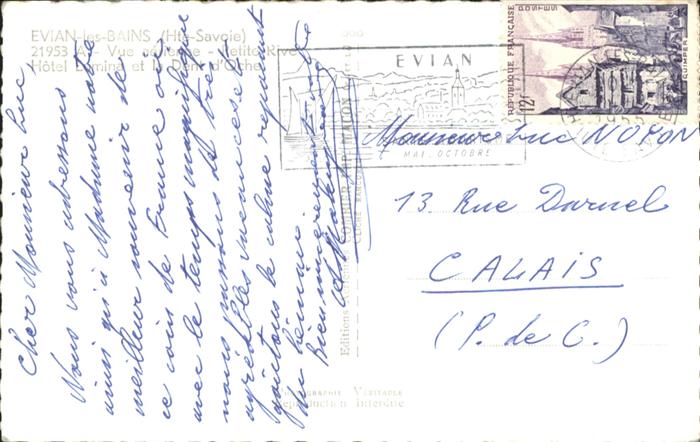 EVIAN-les-BAINS (Hte-Savoie)
21953 A - Vue aérienne - Petite Rive
Hôtel Lumina et la Dent d'Oche
Cher Monsieur Luc,
Nous vous adressons
ainsi qu'à Madame notre
meilleur souvenir de
ce coin de France où
avec le temps magnifique
nous passons de très
agréables vacances et
goûtons le calme reposant
du Léman.
Bien sincèrement
EVIAN
MAI.OCTOBRE
RÉPUBLIQUE FRANÇAISE
POSTES
12F
QUIMPER
Monsieur Luc NOYON
13 Rue Darnel
CALAIS
(P. de C.)
Editions
MACON
PHOTOGRAPHIE VÉRITABLE
Reproduction Interdite